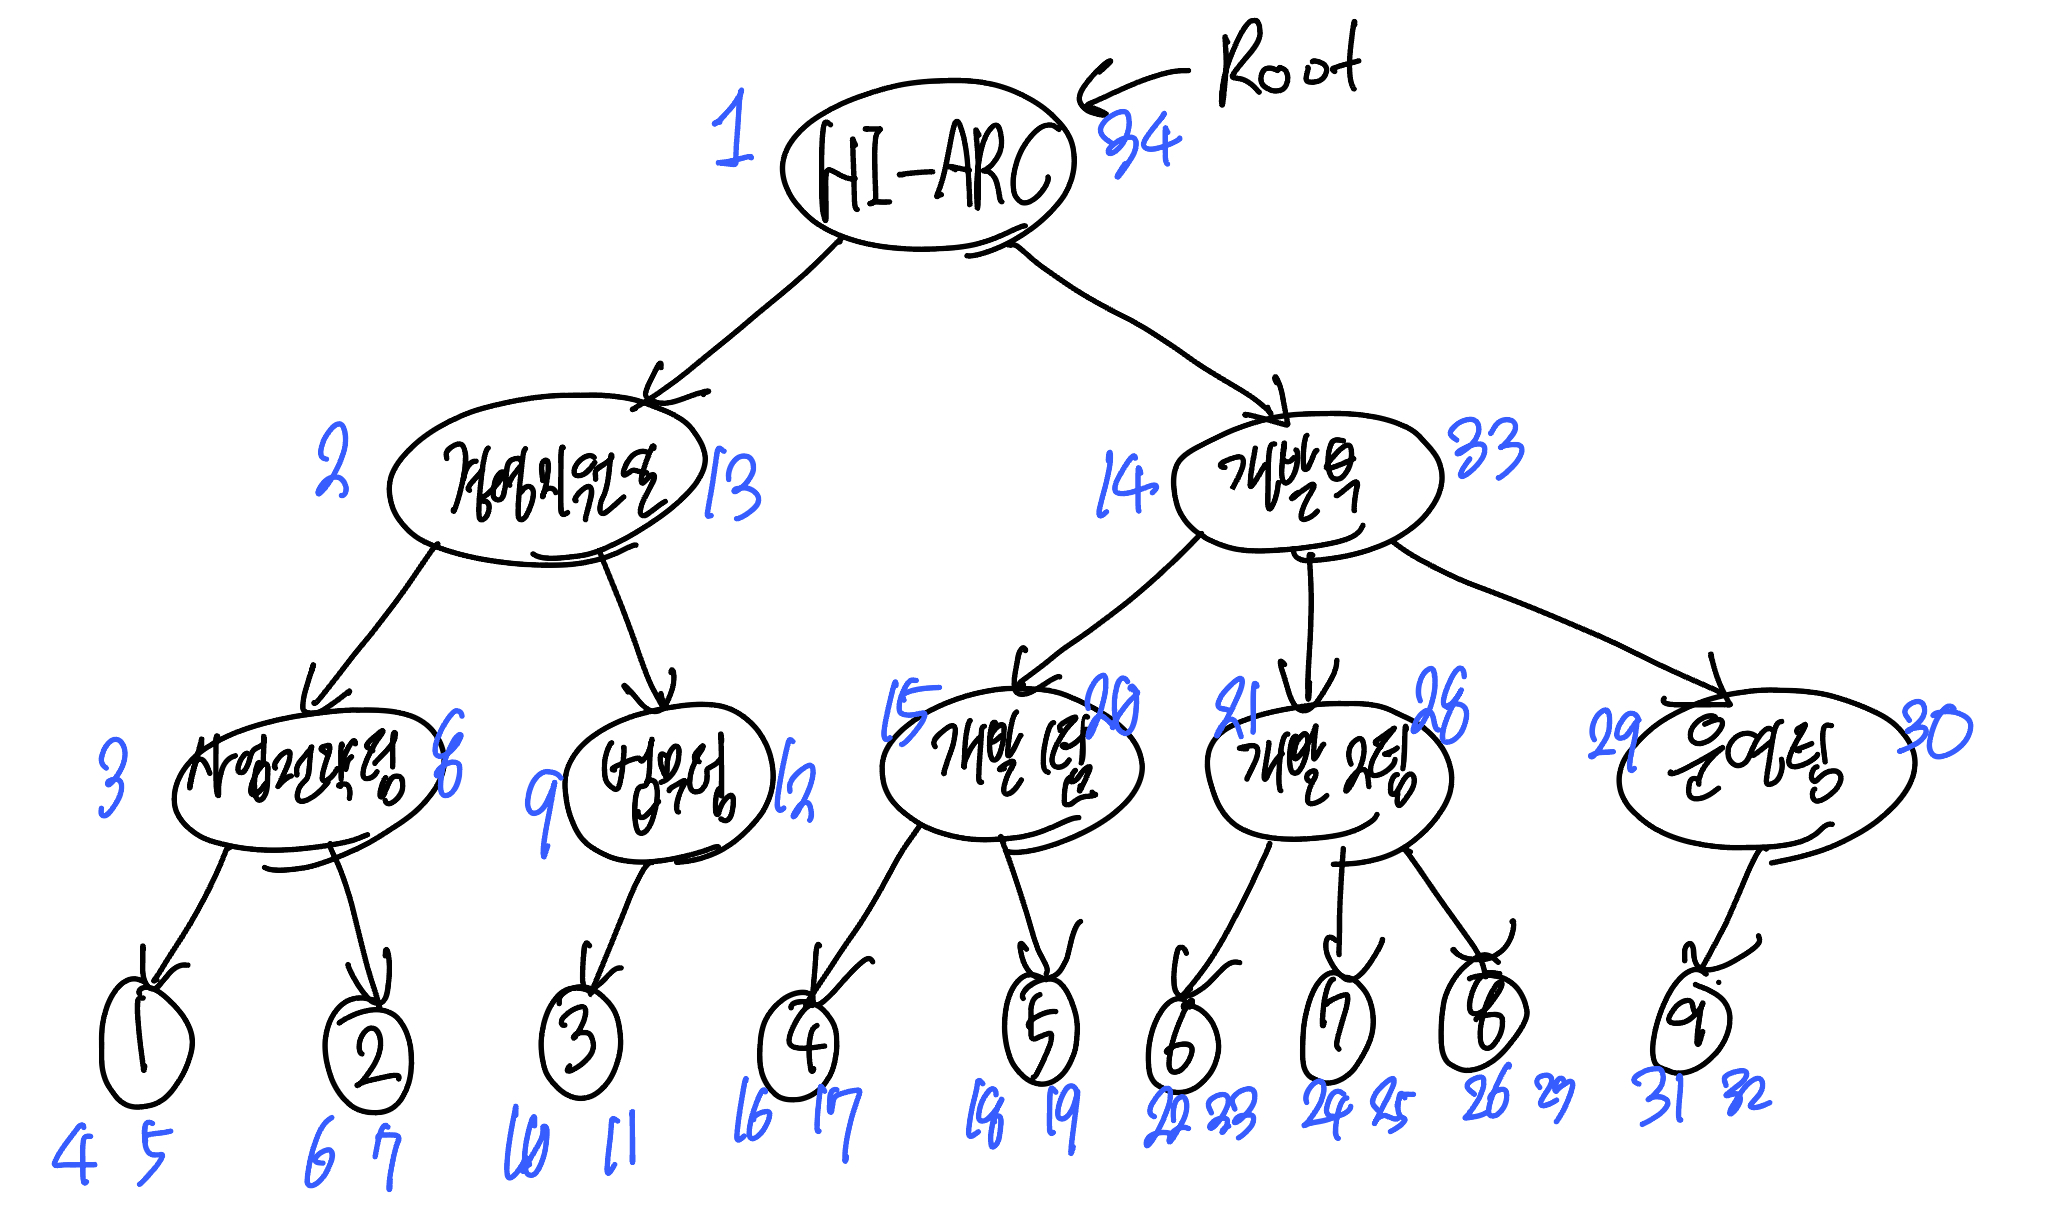 Root
1 HI-ARC 34
2 경영지원본 13
14 개발본부 33
3 사업전략팀 8
9 법무팀 12
15 개발 1팀 20
21 개발 2팀 28
29 운영팀 30
1 2 3 4 5 6 7 8 9
4 5 6 7 10 11 16 17 18 19 22 23 24 25 26 27 31 32